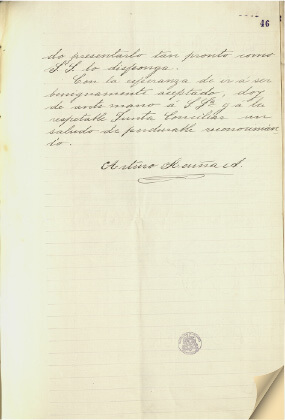 46
do presentarlo tan pronto como
S. S. lo disponga.
Con la esperanza de ir á ser
benignamente aceptado, doy
de ante mano á S Sª y á la
respetable Junta Conciliar un
saludo de perdurable reconocimien
to.
Arturo A.